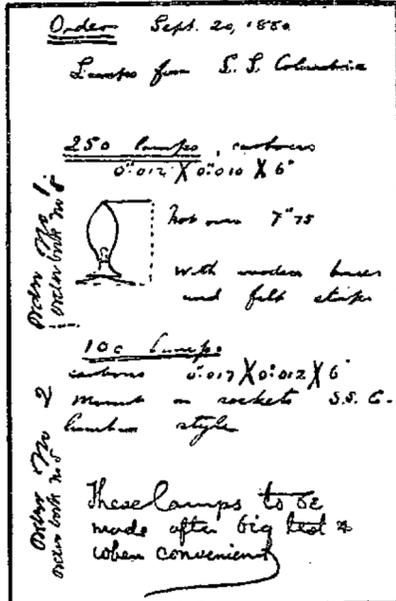 Order Sept. 20, 1880.
Lamps for S. S. Columbia
250 lamps, carbons
0".012 X 0".010 X 6"
not over 7"75
with wooden bases
and felt strips
Order No 1.
order book no 5
100 Lamps
carbons 0".017 X 0".012 X 6"
Mount on sockets S.S. C.
style
Order No 2
order book no 5
These lamps to be
made after big test &
when convenient